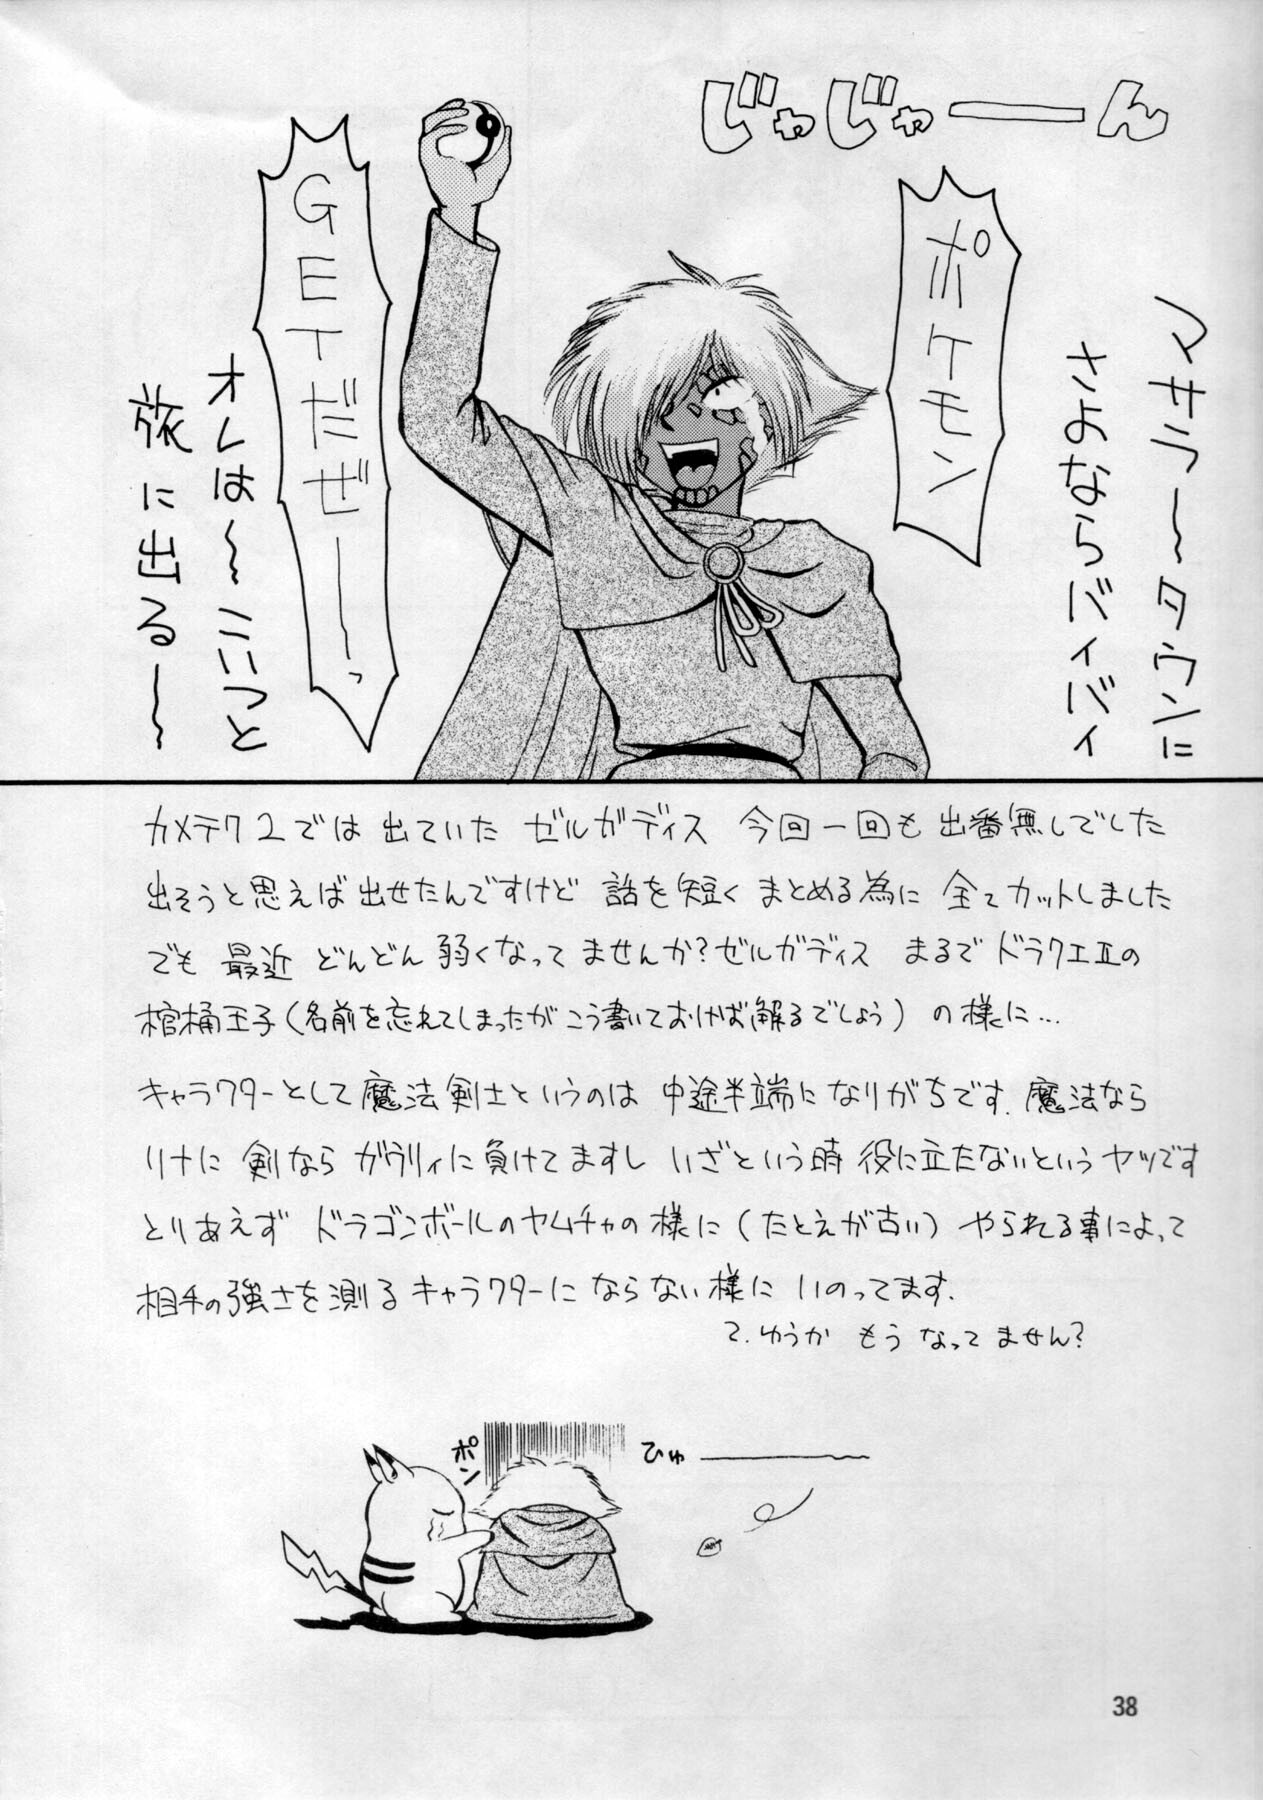 じゃじゃーーん
ポケモン
GETだぜーーっ
マサラ〜タウンに
さよならバイバイ
オレは〜こいつと
旅に出る〜
カメテク2では出ていた ゼルガディス 今回一回も出番無しでした
出そうと思えば出せたんですけど 話を短くまとめる為に 全てカットしました
でも 最近 どんどん弱くなってませんか?ゼルガディス まるでドラクエIIの
棺桶王子(名前を忘れてしまったがこう書いておけば解るでしょう)の様に…
キャラクターとして魔法剣士というのは 中途半端になりがちです. 魔法なら
リナに 剣なら ガウリィに負けてますし いざという時役に立たないというヤツです
とりあえず ドラゴンボールのヤムチャの様に(たとえが古い)やられる事によって
相手の強さを測るキャラクターにならない様に いのってます.
て.ゆうか もう なってません?
ポン
ひゅ———
38